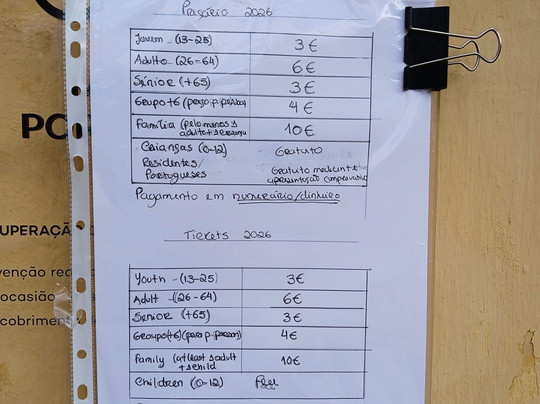 Preçário 2026
Jovem - (13-25) 3€
Adulto - (26-64) 6€
Sénior (+65) 3€
Grupo +6 (preço p. pessoa) 4€
Família (pelo menos 1 adulto + 1 criança) 10€
Crianças (0-12) Gratuito
Residentes/
Portugueses Gratuito mediante
apresentação comprovativo
Pagamento em numerário/dinheiro
Tickets 2026
Youth - (13-25) 3€
Adult - (26-64) 6€
Senior (+65) 3€
Groups (+6) (para p. person) 4€
Family (at least 1 adult
+ 1 child 10€
Children (0-12) Free
PO
UPERAÇÃ
venção rea
ocasião
cobrimento